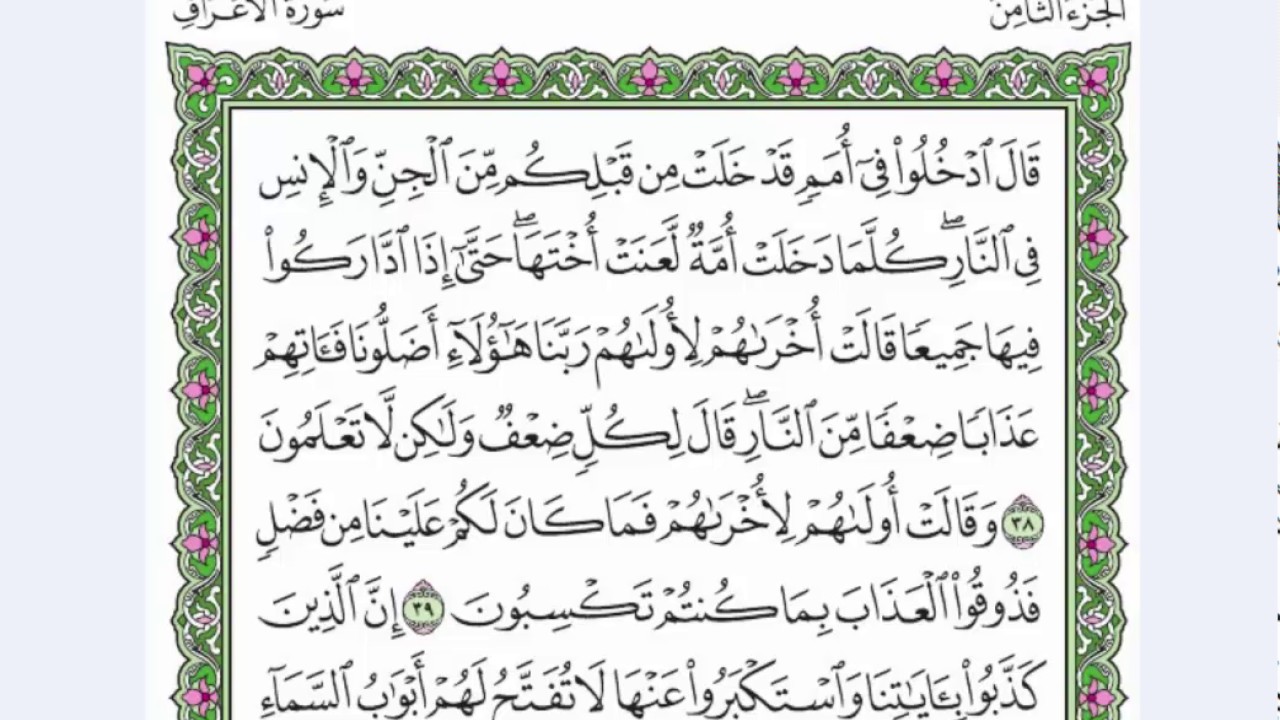 الجزء الثامن
سورة الأعراف
قَالَ ٱدْخُلُوا۟ فِىٓ أُمَمٍ قَدْ خَلَتْ مِن قَبْلِكُم مِّنَ ٱلْجِنِّ وَٱلْإِنسِ
فِى ٱلنَّارِ ۖ كُلَّمَا دَخَلَتْ أُمَّةٌ لَّعَنَتْ أُخْتَهَا ۖ حَتَّىٰٓ إِذَا ٱدَّارَكُوا۟
فِيهَا جَمِيعًا قَالَتْ أُخْرَىٰهُمْ لِأُولَىٰهُمْ رَبَّنَا هَـٰٓؤُلَآءِ أَضَلُّونَا فَـَٔاتِهِمْ
عَذَابًا ضِعْفًا مِّنَ ٱلنَّارِ ۖ قَالَ لِكُلٍّ ضِعْفٌ وَلَـٰكِن لَّا تَعْلَمُونَ
٣٨ وَقَالَتْ أُولَىٰهُمْ لِأُخْرَىٰهُمْ فَمَا كَانَ لَكُمْ عَلَيْنَا مِن فَضْلٍ
فَذُوقُوا۟ ٱلْعَذَابَ بِمَا كُنتُمْ تَكْسِبُونَ ٣٩ إِنَّ ٱلَّذِينَ
كَذَّبُوا۟ بِـَٔايَـٰتِنَا وَٱسْتَكْبَرُوا۟ عَنْهَا لَا تُفَتَّحُ لَهُمْ أَبْوَٰبُ ٱلسَّمَآءِ